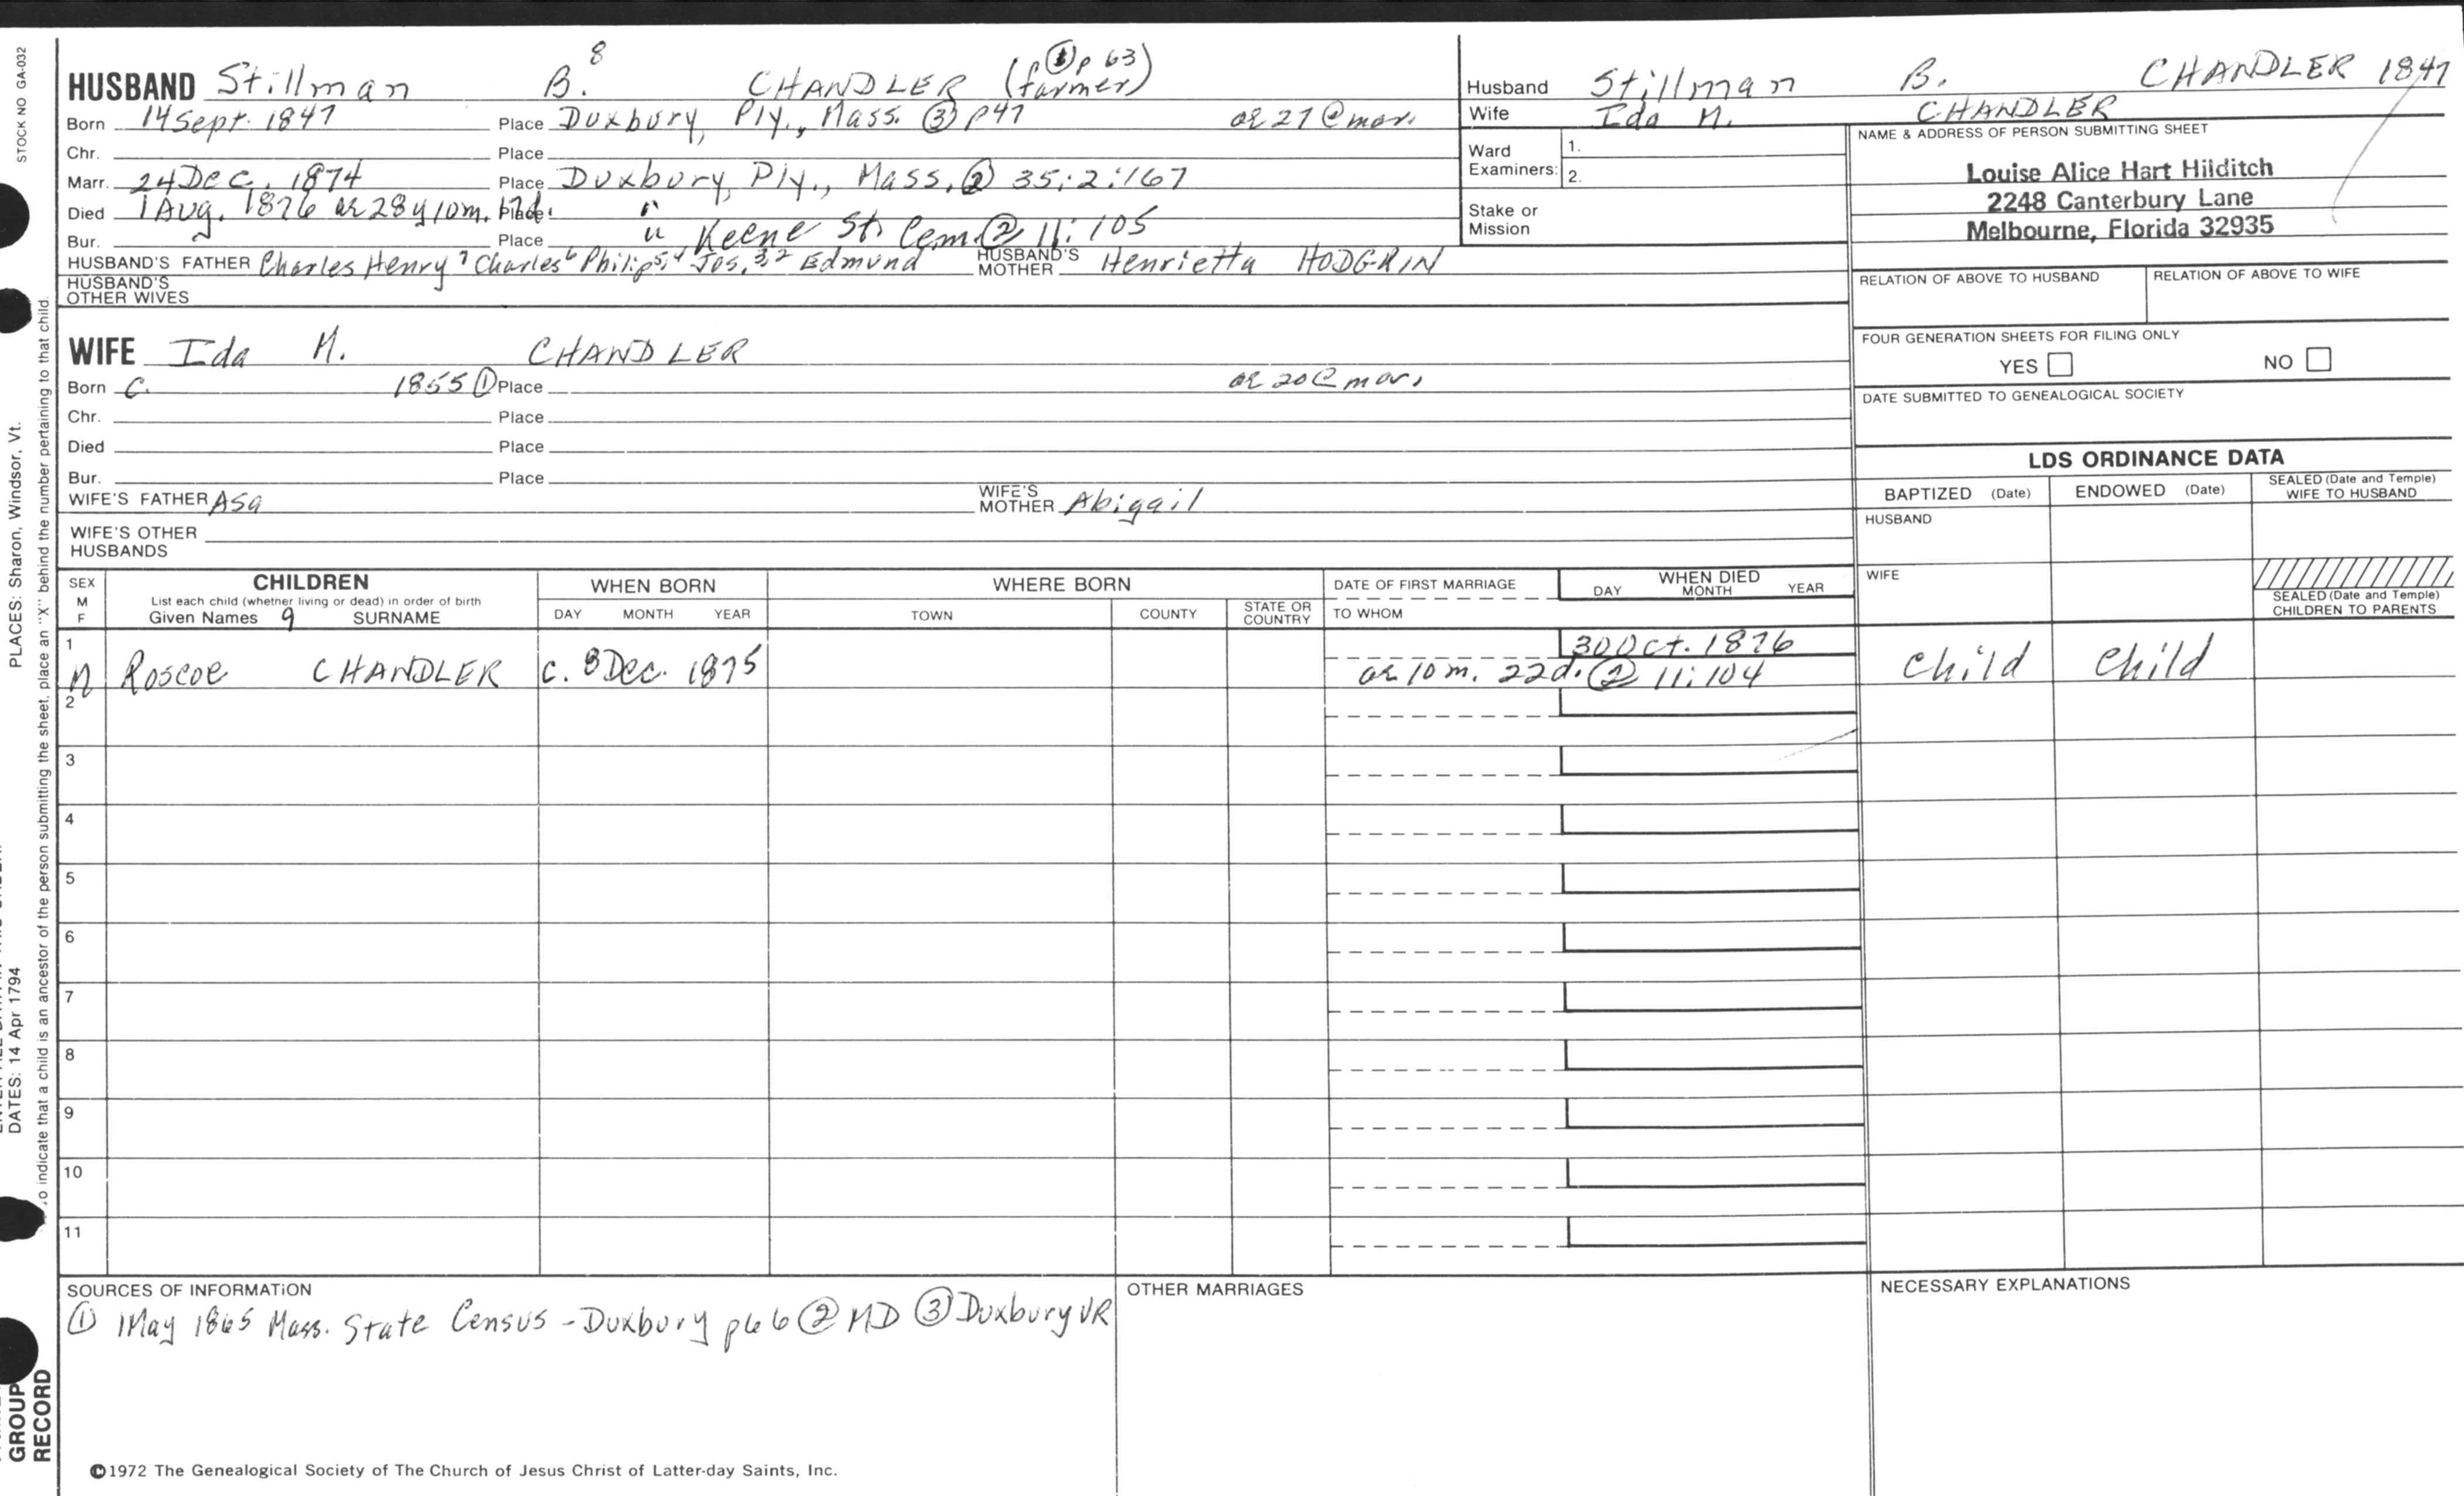 STOCK NO GA-032
HUSBAND Stillman B. 8 CHANDLER (farmer) (p ① p 63)
Born 14 Sept. 1847 Place Duxbury, Ply., Mass. ③ p47 ae 27 @ mar.
Chr. Place
Marr. 24 Dec. 1874 Place Duxbury, Ply., Mass. ② 35:2:167
Died 1 Aug. 1876 ae 28 y 10m. 17d. Place "
Bur. Place " Keene St. Cem. ② 11:105
HUSBAND'S FATHER Charles Henry 7 Charles 6 Philip 5,4 Jos. 3,2 Edmund HUSBAND'S MOTHER Henrietta HODGKIN
HUSBAND'S OTHER WIVES
Husband Stillman B. CHANDLER 1847
Wife Ida M. CHANDLER
Ward Examiners: 1.
2.
Stake or Mission
NAME & ADDRESS OF PERSON SUBMITTING SHEET
Louise Alice Hart Hilditch
2248 Canterbury Lane
Melbourne, Florida 32935
RELATION OF ABOVE TO HUSBAND RELATION OF ABOVE TO WIFE
FOUR GENERATION SHEETS FOR FILING ONLY
YES NO
DATE SUBMITTED TO GENEALOGICAL SOCIETY
WIFE Ida M. CHANDLER
Born C. 1855 ① Place ae 20 @ mar.
Chr. Place
Died Place
Bur. Place
WIFE'S FATHER Asa WIFE'S MOTHER Abigail
WIFE'S OTHER HUSBANDS
LDS ORDINANCE DATA
BAPTIZED (Date) ENDOWED (Date) SEALED (Date and Temple) WIFE TO HUSBAND
HUSBAND
WIFE
SEALED (Date and Temple) CHILDREN TO PARENTS
SEX M F CHILDREN WHEN BORN WHERE BORN DATE OF FIRST MARRIAGE WHEN DIED
List each child (whether living or dead) in order of birth
Given Names 9 SURNAME DAY MONTH YEAR TOWN COUNTY STATE OR COUNTRY TO WHOM DAY MONTH YEAR
1 30 Oct. 1876
M Roscoe CHANDLER c. 8 Dec. 1875 ae 10 m. 22d. ② 11:104 Child Child
2
3
4
5
6
7
8
9
10
11
SOURCES OF INFORMATION
① 1 May 1865 Mass. State Census - Duxbury p66 ② MD ③ Duxbury VR
OTHER MARRIAGES
NECESSARY EXPLANATIONS
©1972 The Genealogical Society of The Church of Jesus Christ of Latter-day Saints, Inc.
PLACES: Sharon, Windsor, Vt.
DATES: 14 Apr 1794
o indicate that a child is an ancestor of the person submitting the sheet, place an "X" behind the number pertaining to that child.
GROUP
RECORD